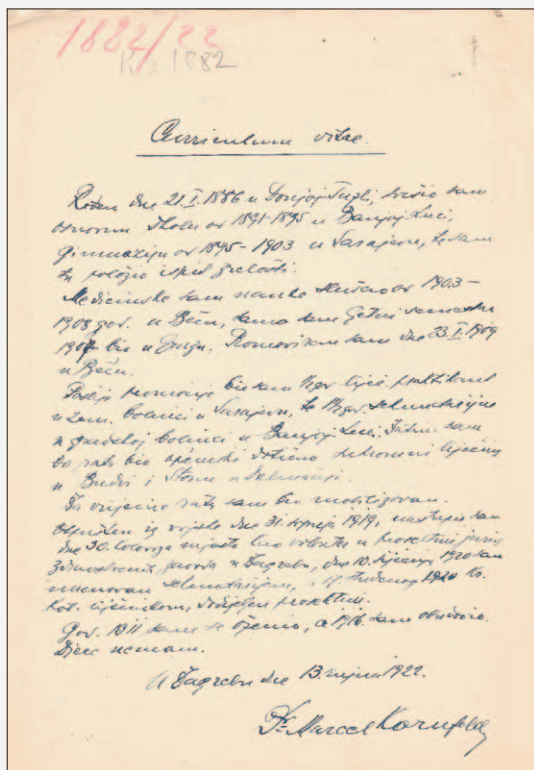 1882/22
1882
Curriculum vitae.
Rođen dne 21.I.1886 u Donjoj Tuzli, svršio sam
osnovnu školu od 1891-1895 u Banjoj Luci,
gimnaziju od 1895-1903 u Sarajevu, te sam
tu položio ispit zrelosti.
Medicinske sam nauke slušao od 1903-
1908 god. u Beču, samo sam ljetni semestar
1907 bio u Pragu. Promoviran sam dne 23.I.1909
u Beču.
Poslije promocije bio sam liječ. praktikant
u zem. bolnici u Sarajevu, te sekundarijus
u gradskoj bolnici u Banjoj Luci. Zatim sam
do rata bio općinski liječnik
u i Stonu u Dalmaciji.
Za vrijeme rata sam bio mobilizovan.
Otpušten iz vojske dne 31. srpnja 1919, nastupio sam
dne 30. mjesto u
zavoda u Zagrebu, dne 10. siječnja 1920 sam
imenovan sekundarijem, a 17. studenog 1920 kr.
kot. liječnikom,
God. 1911 sam se oženio, a 1916. sam obudovio.
Djece nemam.
U Zagrebu dne 13. rujna 1922.
Dr Marcel Kornfeld